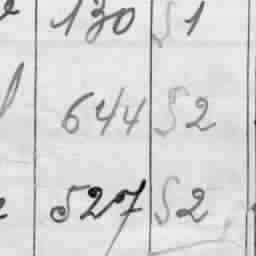 130 S 1
644 S 2
527 S 2